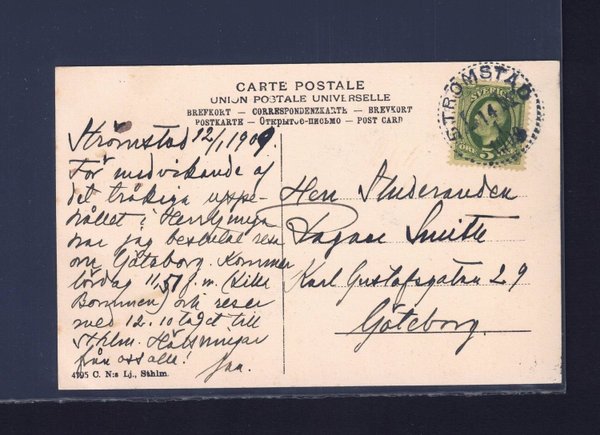 CARTE POSTALE
UNION POSTALE UNIVERSELLE
BREVKORT – CORRESPONDENZKARTE – BREVKORT
POSTKARTE – Открытое-письмо – POST CARD
STRÖMSTAD
14
SVERIGE
5
ÖRE
Strömstad 12/1 1909.
För undvikande af
det tråkiga uppe-
hållet i Herrljunga
har jag beslutat resa
om Göteborg. Kommer
lördag 11.51 f.m. (Lilla
Bommen) och reser
med 12.10 tåget till
Sthlm. Hälsningar
från oss alla!
Herr Studeranden
Ragnar Smith
Karl Gustafsgatan 29
Göteborg.
4795 C. N:s Lj., Sthlm.